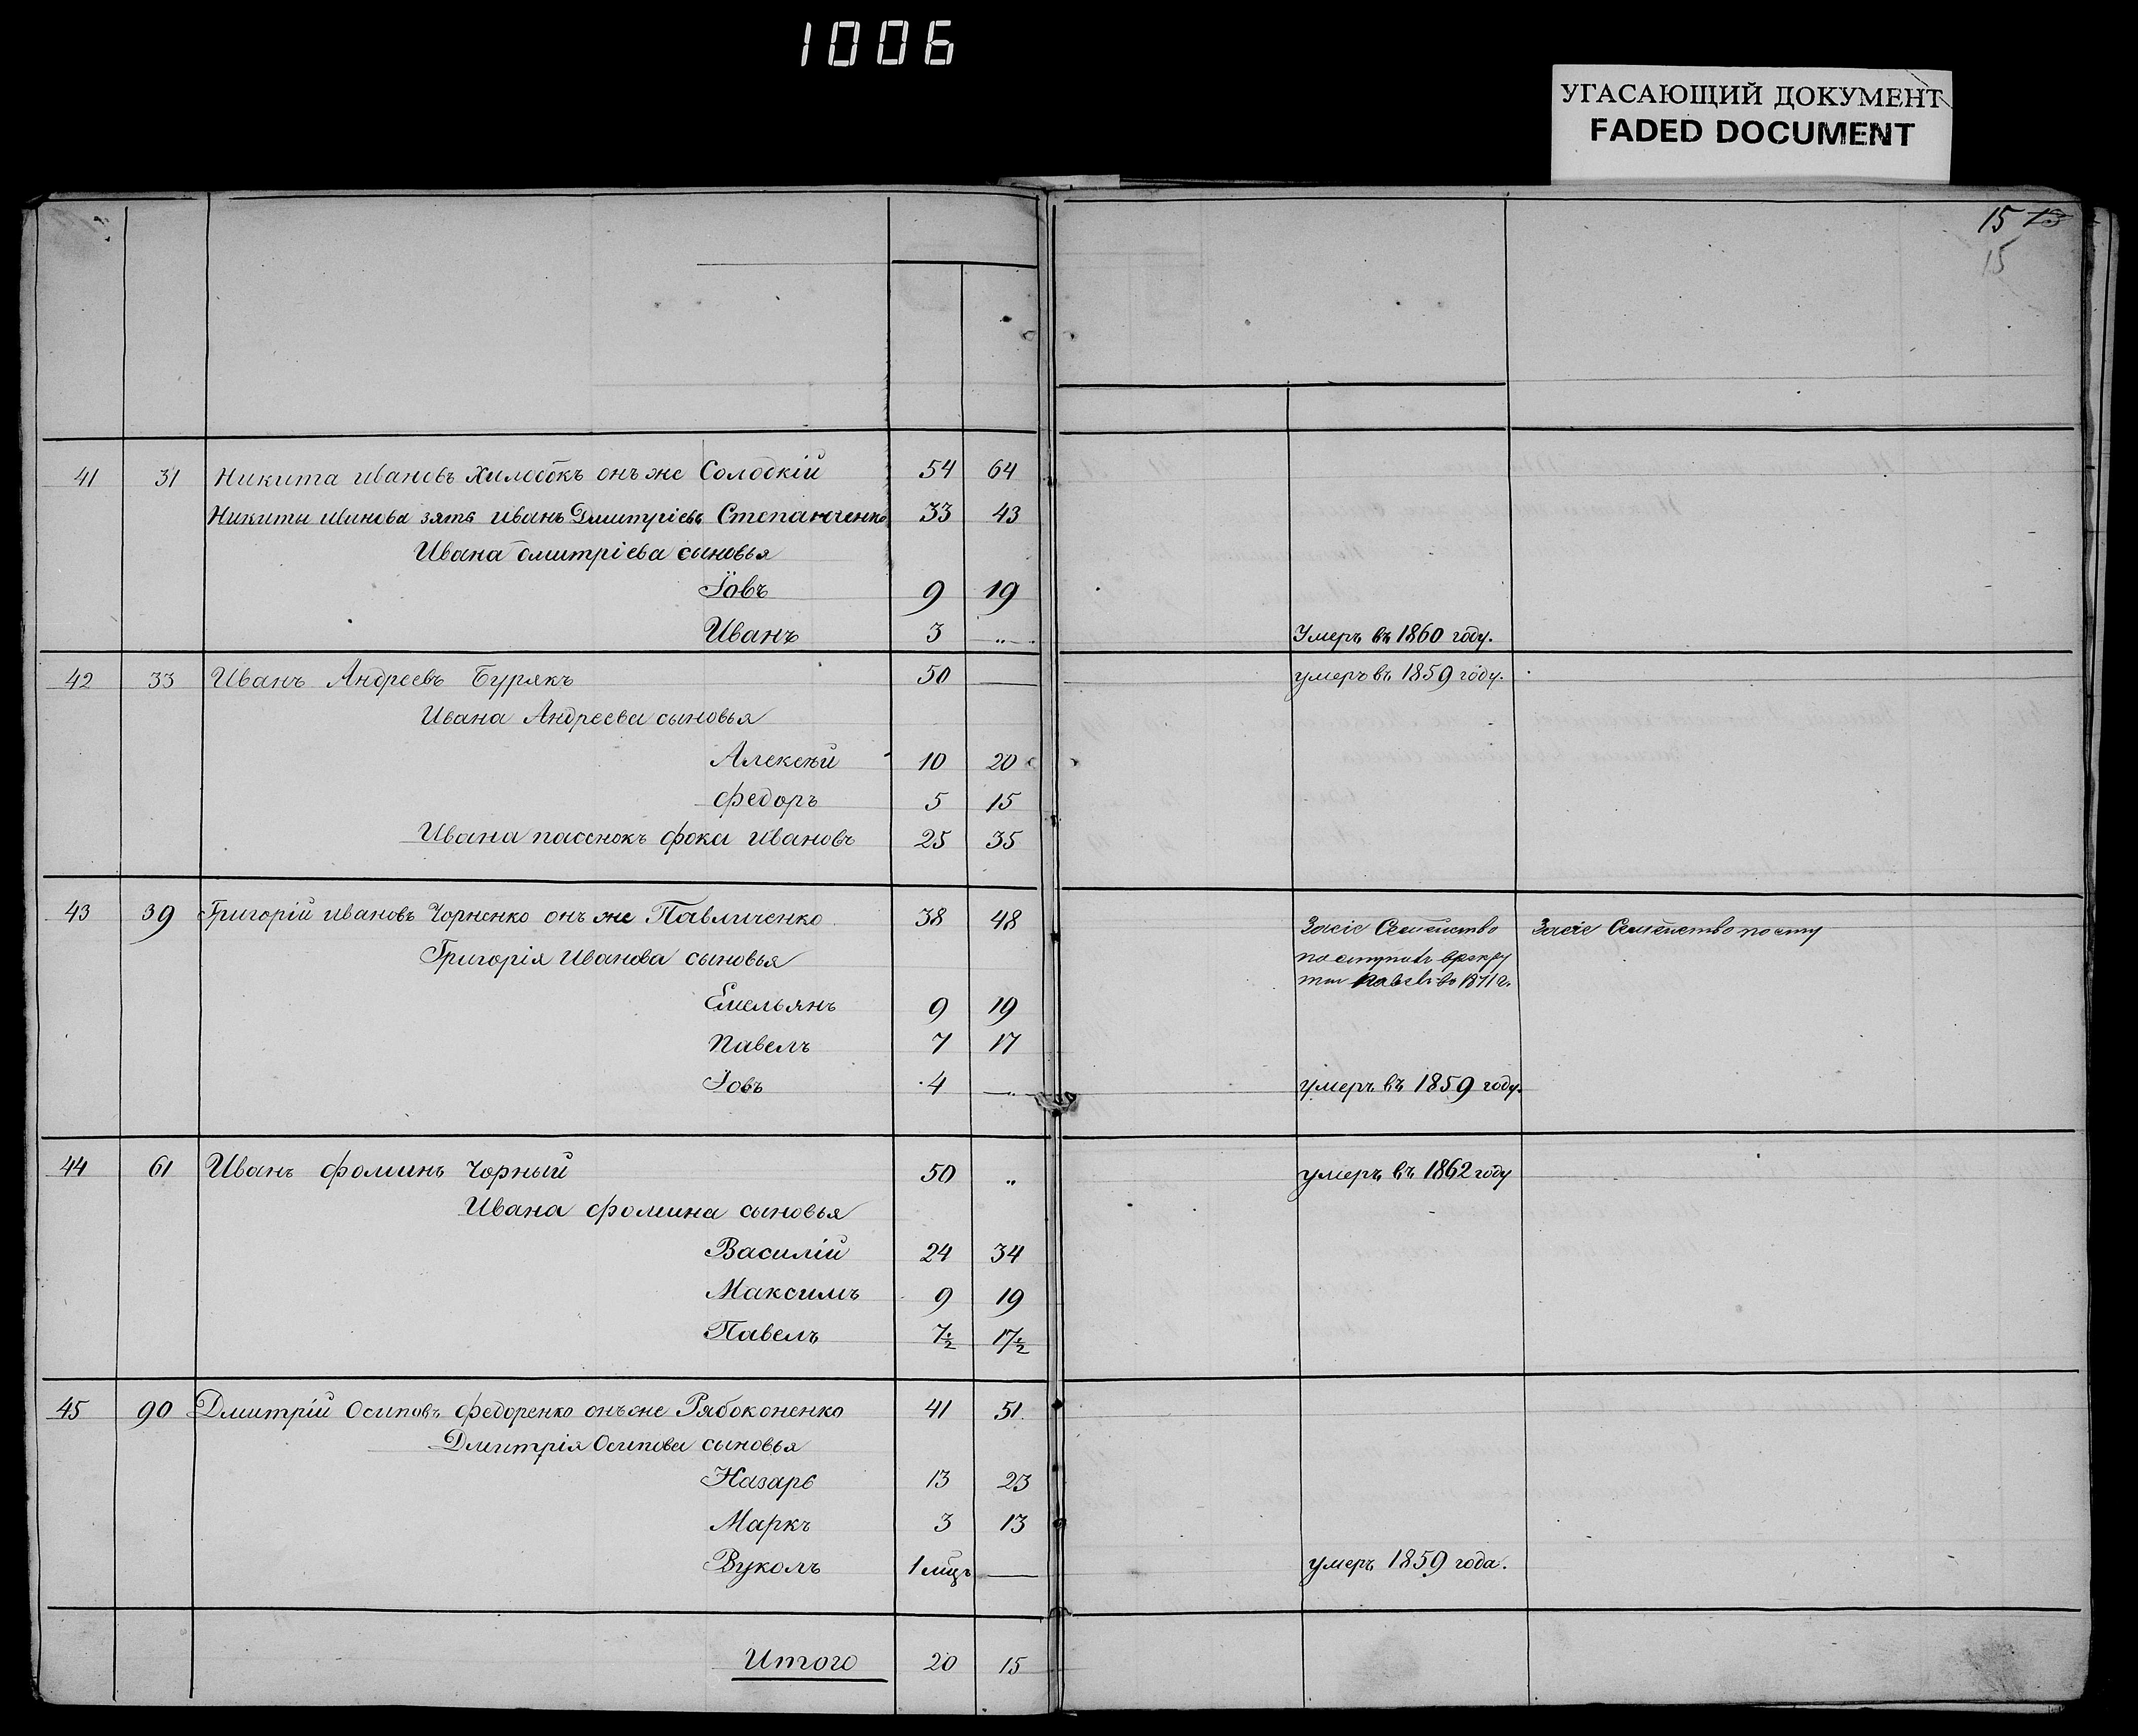 1006
УГАСАЮЩИЙ ДОКУМЕНТ
FADED DOCUMENT
15 13
15
41 31 Никита Ивановъ Хилобокъ онъ же Солодкій 54 64
Никиты Иванова зять Иванъ Дмитріевъ Степанченко 33 43
Ивана Дмитріева сыновья
Іовъ 9 19
Иванъ 3 „ Умеръ въ 1860 году.
42 33 Иванъ Андреевъ Бурякъ 50 — умеръ въ 1859 году.
Ивана Андреева сыновья
Алексѣй 10 20
Федоръ 5 15
Ивана пасенокъ Фока Ивановъ 25 35
43 39 Григорій Ивановъ Чорненко онъ же Павличенко 38 48 За сіе Семейство За сіе Семейство
Григорія Иванова сыновья
поступилъ
Павелъ въ 1871 г.
Емельянъ 9 19
Павелъ 7 17
Іовъ 4 — умеръ въ 1859 году.
44 61 Иванъ Фоминъ Чорный 50 „ умеръ въ 1862 году
Ивана Фомина сыновья
Василій 24 34
Максимъ 9 19
Павелъ 7½ 17½
45 90 Дмитрій Осиповъ Федоренко онъ же Рябоконенко 41 51
Дмитрія Осипова сыновья
Назаръ 13 23
Маркъ 3 13
Вуколъ 1 мцъ — умеръ 1859 года.
Итого 20 15